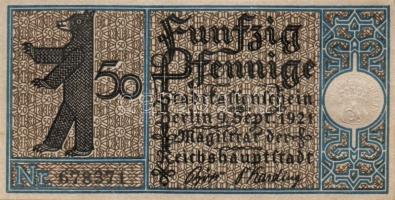 Funfzig
50 Pfennige
Stadtkassenschein
Berlin 9. Sept. 1921
Magistrat der
Reichshauptstadt
Nr. 678371